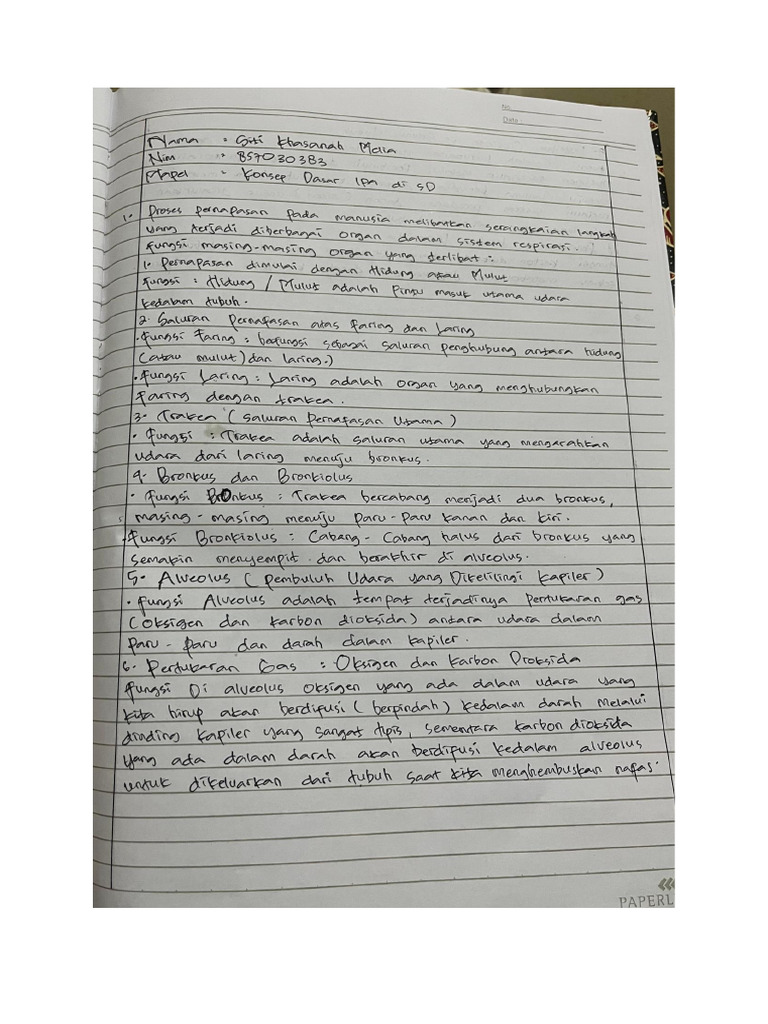 No.
Date
Nama : Siti Khasanah Melia
Nim : 857030383
Mapel : Konsep Dasar IPA di SD
1. Proses pernapasan pada manusia melibatkan serangkaian langkah
yang terjadi diberbagai organ dalam sistem respirasi.
fungsi masing-masing organ yang terlibat :
1. Pernapasan dimulai dengan Hidung atau Mulut
fungsi : Hidung / Mulut adalah Pintu masuk utama udara
kedalam tubuh.
2. Saluran Pernafasan atas faring dan Laring
• fungsi faring : berfungsi sebagai saluran penghubung antara hidung
(atau mulut) dan laring.)
• fungsi Laring : Laring adalah organ yang menghubungkan
faring dengan trakea.
3. Trakea (Saluran Pernafasan Utama)
• fungsi : Trakea adalah saluran utama yang mengarahkan
udara dari laring menuju bronkus.
4. Bronkus dan Bronkiolus
• fungsi BrOnkus : Trakea bercabang menjadi dua bronkus,
masing-masing menuju paru-paru kanan dan kiri.
• fungsi Bronkiolus : Cabang-Cabang halus dari bronkus yang
semakin menyempit dan berakhir di alveolus.
5. Alveolus (pembuluh Udara yang Dikelilingi kapiler)
• fungsi Alveolus adalah tempat terjadinya pertukaran gas
(Oksigen dan karbon dioksida) antara udara dalam
paru-paru dan darah dalam kapiler.
6. Pertukaran Gas : Oksigen dan Karbon Dioksida
fungsi Di alveolus oksigen yang ada dalam udara yang
kita hirup akan berdifusi (berpindah) kedalam darah melalui
dinding kapiler yang sangat tipis, sementara karbon dioksida
yang ada dalam darah akan berdifusi kedalam alveolus
untuk dikeluarkan dari tubuh saat kita menghembuskan nafas.
PAPERL